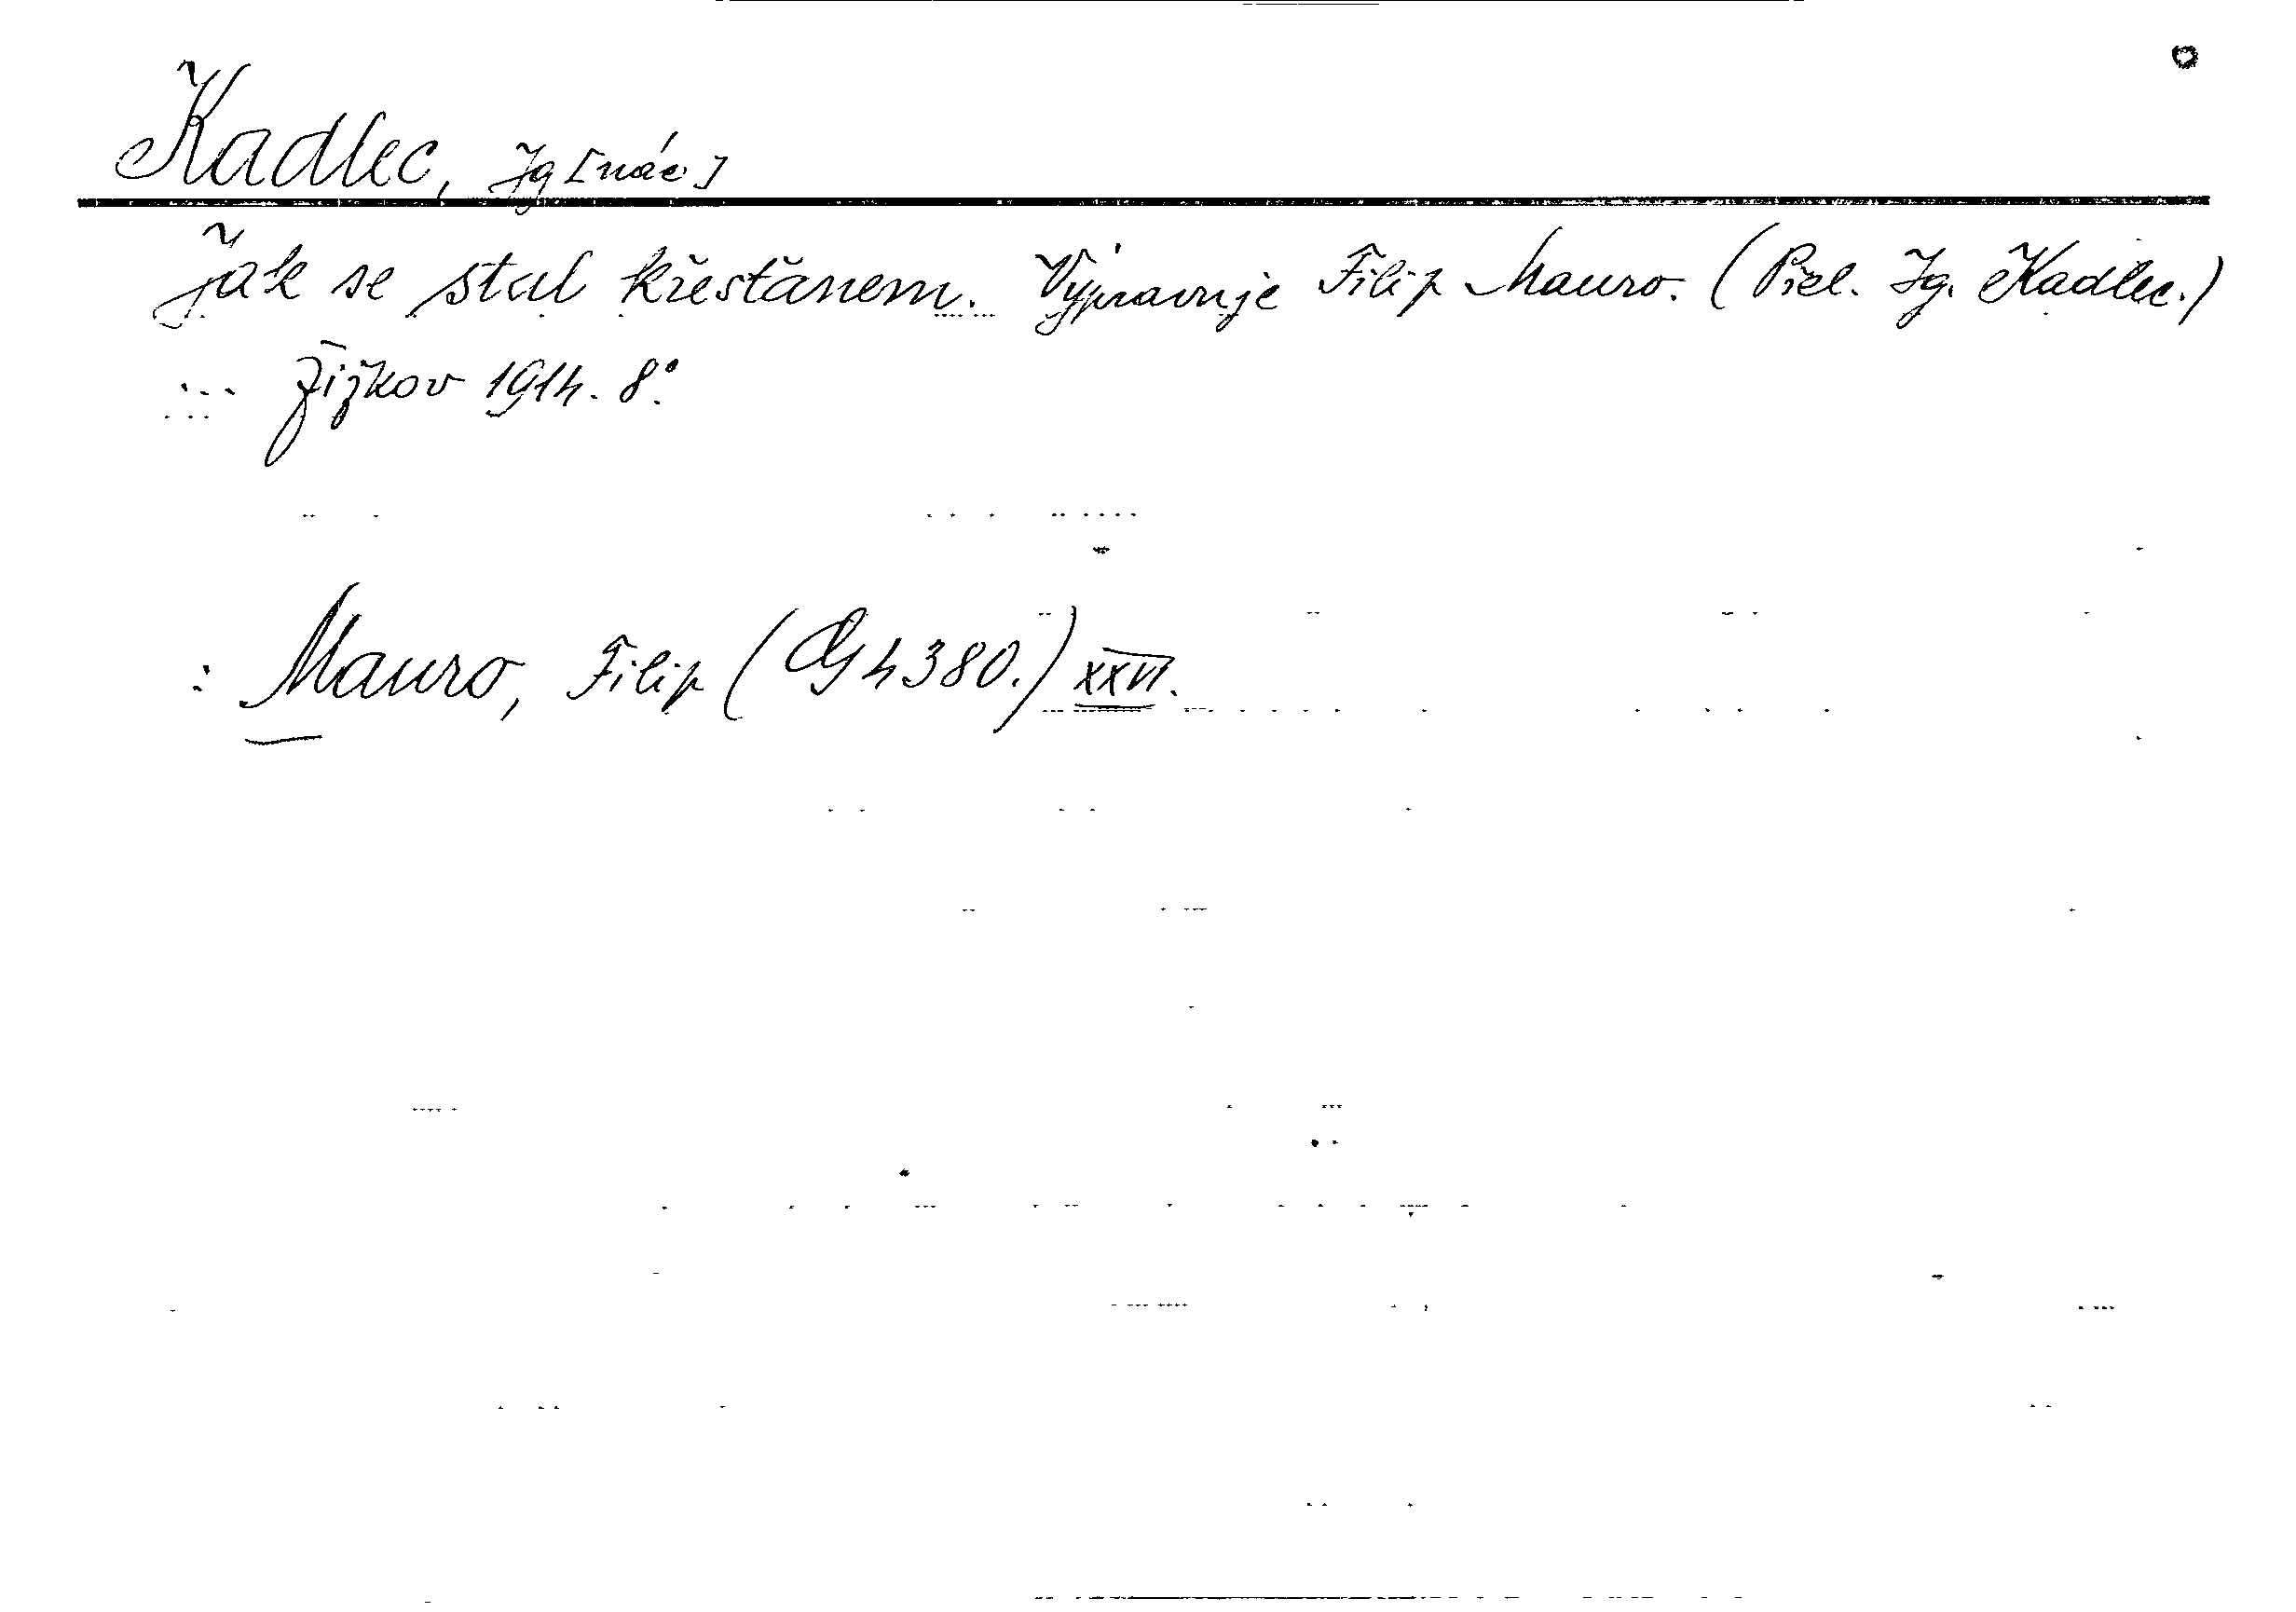 Kadlec, Ig[nác]
Jak se stal křesťanem. Vypravuje Filip Mauro. (Přel. Ig. Kadlec.)
... Žižkov 1914. 8°.
: Mauro, Filip (Cg 4380.) XXVI.